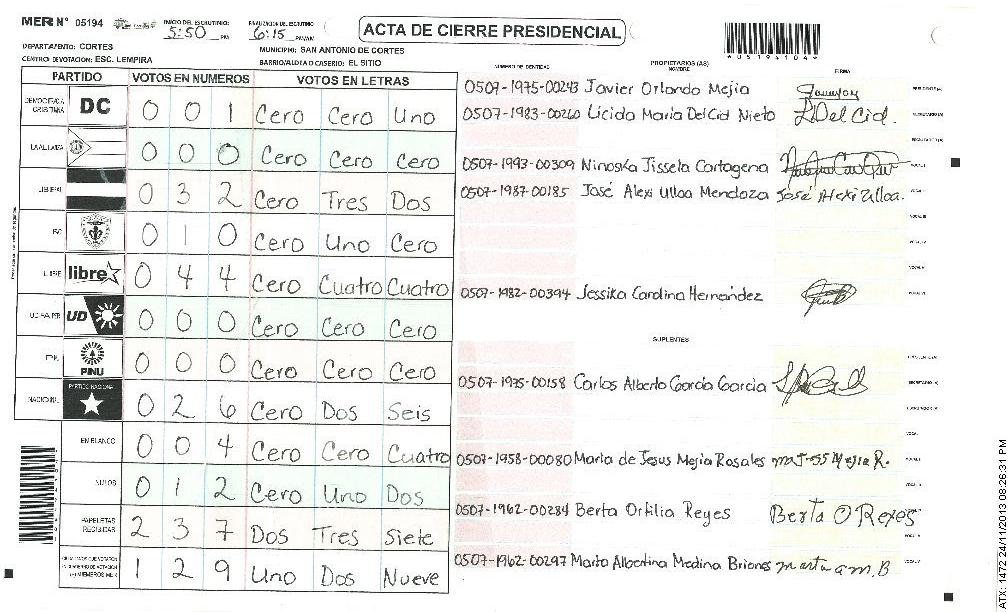 MER Nº 05194
INICIO DEL ESCRUTINIO: 5:50 PM
FINALIZACION DEL ESCRUTINIO 6:15 PM/AM
ACTA DE CIERRE PRESIDENCIAL
*05194104*
DEPARTAMENTO: CORTES
MUNICIPIO: SAN ANTONIO DE CORTES
CENTRO DE VOTACION: ESC. LEMPIRA
BARRIO/ALDEA O CASERIO: EL SITIO
PARTIDO VOTOS EN NUMEROS VOTOS EN LETRAS
DEMOCRACIA CRISTIANA DC 0 0 1 Cero Cero Uno
LA ALIANZA 0 0 0 Cero Cero Cero
LIBERAL 0 3 2 Cero Tres Dos
0 1 0 Cero Uno Cero
LIBRE libre 0 4 4 Cero Cuatro Cuatro
UD 0 0 0 Cero Cero Cero
PINU 0 0 0 Cero Cero Cero
NACIONAL PARTIDO NACIONAL 0 2 6 Cero Dos Seis
EN BLANCO 0 0 4 Cero Cero Cuatro
NULOS 0 1 2 Cero Uno Dos
PAPELETAS RECIBIDAS 2 3 7 Dos Tres Siete
1 2 9 Uno Dos Nueve
NUMERO DE IDENTIDAD PROPIETARIOS (AS) NOMBRE FIRMA
0509-1975-00243 Javier Orlando Mejia
0507-1983-00260 Licida Maria Del Cid Nieto L Del Cid.
0507-1993-00309 Ninoska Jissela Cartagena
0507-1987-00185 José Alexi Ulloa Mendoza José Alexi Ulloa.
0507-1982-00394 Jessika Carolina Hernández
SUPLENTES
0507-1975-00158 Carlos Alberto García García
0507-1958-00080 Maria de Jesus Mejia Rosales
0507-1962-00284 Berta Orfilia Reyes Berta O Reyes
0507-1962-00297 Marta Albertina Medina Briones marta am. B
ATX: 1472 24/11/2013 08:26:31 PM